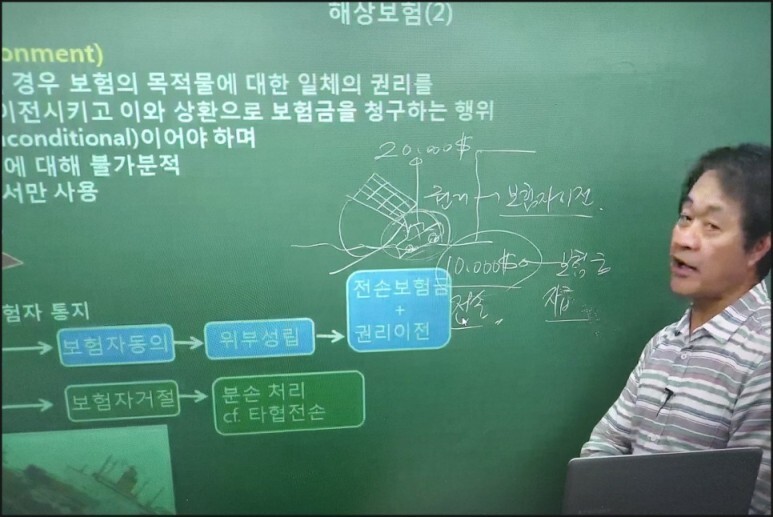 해상보험(2)
onment)
경우 보험의 목적물에 대한 일체의 권리를
이전시키고 이와 상환으로 보험금을 청구하는 행위
nconditional)이어야 하며
에 대해 불가분적
서만 사용
20,000$
권리 → 보험자이전.
10,000$
보험금
지급
전손
험자 통지
보험자동의
위부성립
전손보험금
+
권리이전
보험자거절
분손 처리
cf. 타협전손